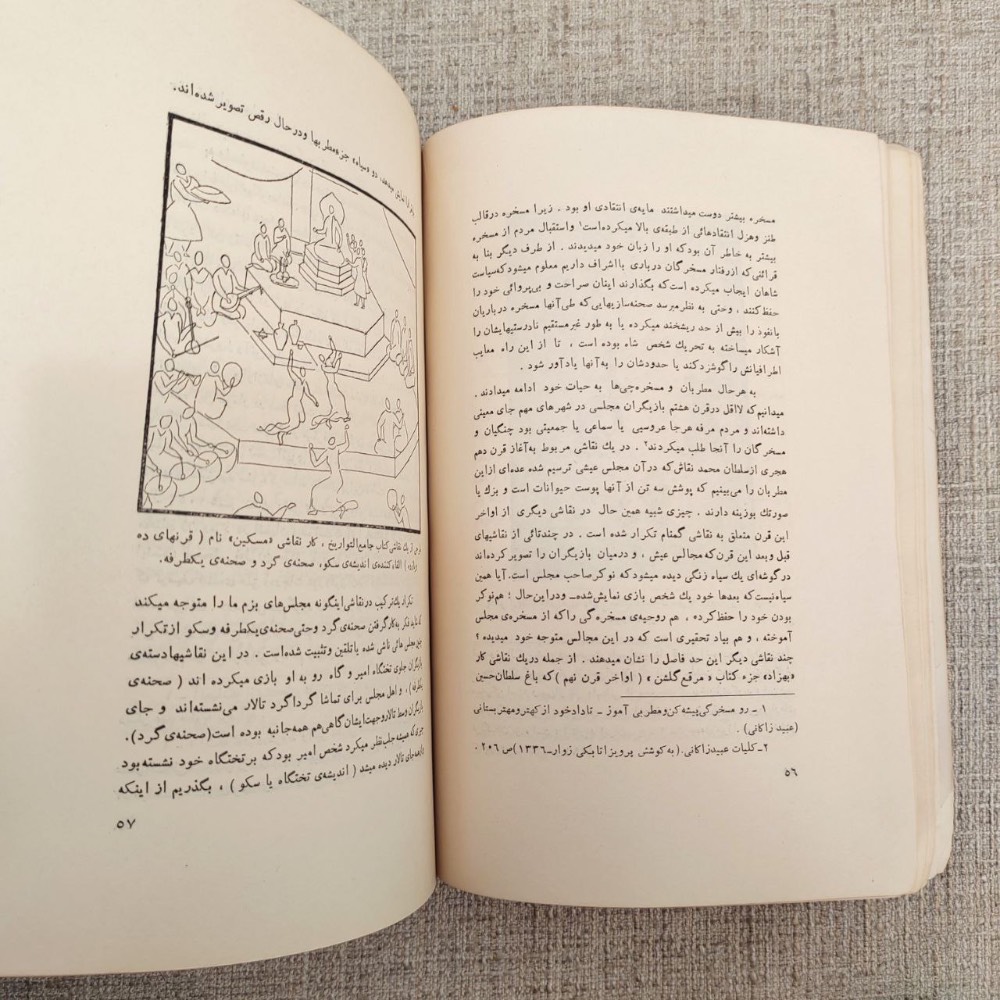 مسخره بیشتر دوست میداشتند مایه‌ی انتقادی او بود . زیرا مسخره درقالب
طنز وهزل انتقادهائی از طبقه‌ی بالا میکرده‌است۱ واستقبال مردم از مسخره
بیشتر به خاطر آن بودکه او را زبان خود میدیدند . از طرف دیگر بنا به
قرائنی که ازرفتار مسخرگان درباری بااشراف داریم معلوم میشودکه‌سیاست
شاهان ایجاب میکرده است‌که بگذارند اینان صراحت و بی‌پروائی خود را
حفظ‌کنند . وحتی به نظر میرسد صحنه‌سازیهایی‌که طی‌آنها مسخره درباریان
بانفوذ را بیش از حد ریشخند میکرده یا به طور غیرمستقیم نادرستیهایشان را
آشکار میساخته به تحریك شخص شاه بوده است ، تا از این راه معایب
اطرافیانش راگوشزدکند یا حدودشان را به‌آنها یادآور شود .
به هرحال مطربان و مسخره‌چی‌ها به حیات خود ادامه میدادند .
میدانیم‌که لااقل درقرن هشتم بازیگران مجلسی در شهرهای مهم جای معینی
داشته‌اند و مردم مرفه هرجا عروسیی یا سماعی یا جمعیتی بود چنگیان و
مسخرگان را آنجا طلب میکردند۲ . در یك نقاشی مربوط به‌آغاز قرن دهم
هجری ازسلطان محمد نقاش‌که درآن مجلس عیشی ترسیم شده عده‌ای ازاین
مطربان را می‌بینیم که پوشش سه تن از آنها پوست حیوانات است و بزك یا
صورتك بوزینه دارند . چیزی شبیه همین حال در نقاشی دیگری از اواخر
این قرن متعلق به نقاشی گمنام تکرار شده است . در چندتائی از نقاشیهای
قبل وبعد این قرن‌که‌مجالس عیش ، و درمیان بازیگران را تصویرکرده‌اند
درگوشه‌ای یك سیاه زنگی دیده میشودکه نوکرصاحب مجلس است. آیا همین
سیاه‌نیست‌که بعدها خود یك شخص بازی نمایش‌شده‌ـ ودراین‌حال ؛ هم‌نوکر
بودن خود را حفظ‌کرده ، هم روحیه‌ی مسخره‌گی راکه از مسخره‌ی مجلس
آموخته ، و هم بیاد تحقیری است که در این مجالس متوجه خود میدیده ؟
چند نقاشی دیگر این حد فاصل را نشان میدهند . از جمله دریك نقاشی کار
«بهزاد» جزء کتاب « مرقع گلشن » ( اواخر قرن نهم )که باغ سلطان‌حسین
۱ ـ رو مسخرگی‌پیشه‌کن‌ومطربی آموز ـ تادادخود ازکهترومهتربستانی
(عبید زاکانی) .
۲ـ کلیات عبیدزاکانی.(به‌کوشش پرویزاتابکی زوارـ۱۳۳۶)ص ۲۰۶ .
۵۶
میدهد، دو «سیاه» جزء‌مطربها ودرحال رقص تصویر شده‌اند.
از یك نقاشی‌کتاب جامع‌التواریخ ، کار نقاشی «مسکین» نام ( قرنهای ده
) القاءکننده‌ی اندیشه‌ی سکو، صحنه‌ی گرد و صحنه‌ی یکطرفه.
تکرار یك‌ترکیب درنقاشی‌اینگونه مجلس‌های بزم ما را متوجه میکند
که فکر به‌کارگرفتن صحنه‌ی‌گرد وحتی‌صحنه‌ی‌یکطرفه وسکو ازتکرار
مجلس هائی ناشی شده یاتلقین وتثبیت شده‌است . در این نقاشیهادسته‌ی
بازیگران جلوی تختگاه امیر و گاه رو به او بازی میکرده اند ( صحنه‌ی
یکطرفه ) ، و اهل مجلس برای تماشا گرداگرد تالار می‌نشسته‌اند و جای
بازیگران وسط تالاروجهت‌ایشان‌گاهی‌هم همه‌جانبه بوده است(صحنه‌ی گرد).
چیزی‌که همیشه جلب‌نظر میکرد شخص امیر بودکه برتختگاه خود نشسته‌بود
جای تالار دیده میشد ( اندیشه‌ی تختگاه یا سکو ) ، بگذریم از اینکه
۵۷